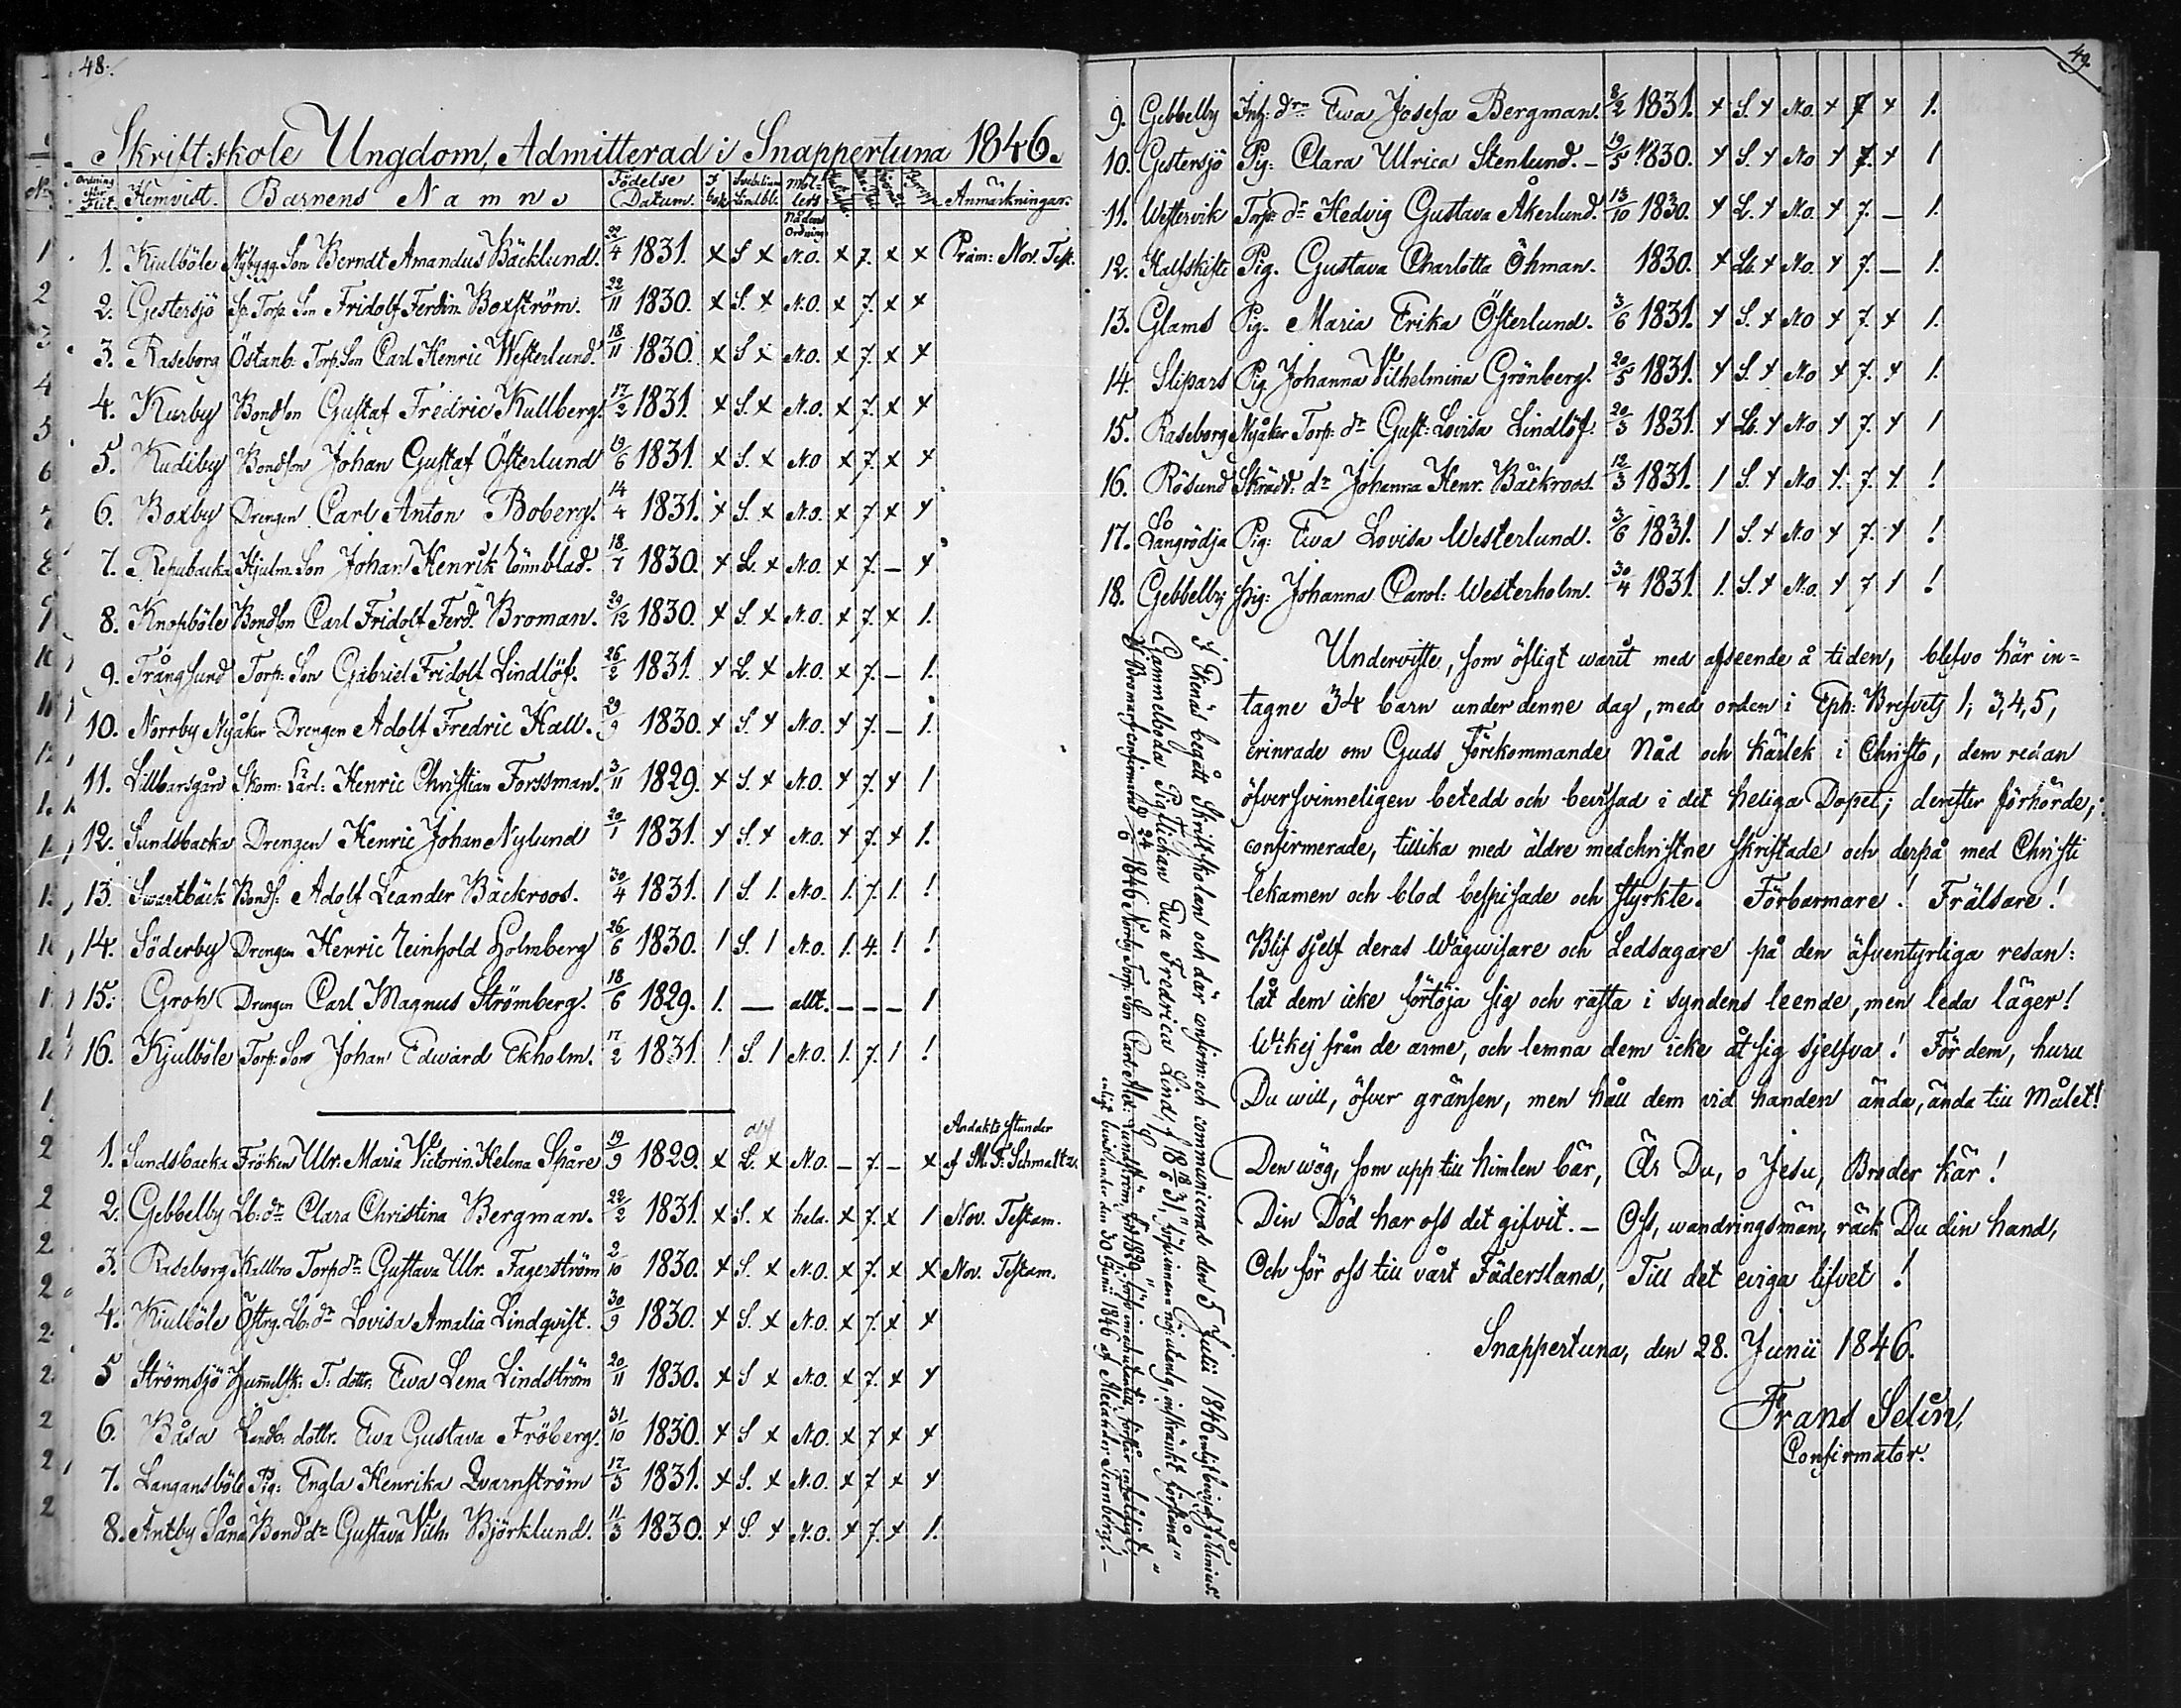 48.
Skriftskole Ungdom, Admitterad i Snappertuna 1846.
Ordning efter Flit. Hemvist. Barnens Namn Födelse Datum. I bok Svebelium Lindbl. Möllers Nådens Ordning Anmärkningar.
1. Kjulböle Nybygg. Son Berndt Amandus Bäcklund. 22/4 1831. x S x N.O. x 7. x x Präm: Nov. Test.
2. Gestersjö Sp. Torp. Son Fridolf Ferdin. Boxström. 22/11 1830. x S. x N.O. x 7. x x
3. Raseborg Östanb. Torp. Son Carl Henric Westerlund. 18/11 1830. x S x N.O. x 7. x x
4. Kurby Bondson Gustaf Fredric Kullberg. 17/2 1831. x S. x N.O. x 7. x x
5. Kudiby Bondson Johan Gustaf Österlund 19/6 1831. x S. x N.O x 7. x x
6. Boxby Drengen Carl Anton Boberg. 14/4 1831. x S. x N.O. x 7 x x
7. Repubacka Hjulm. Son Johan Henrik Lönnblad. 18/7 1830. x L. x N.O. x 7. — x
8. Knopböle Bondson Carl Fridolf Ferd. Broman. 29/12 1830. x S. x N.O. x 7. x 1.
9. Trångsund Torp. Son Gabriel Fridolf Lindlöf. 26/2 1831. x L. x N.O. x 7. — 1.
10. Norrby Nyåker Drengen Adolf Fredric Hall. 29/9 1830. x S. x N.O. x 7. — 1.
11. Lillbarsgård Skom: Lärl: Henric Christian Forssman. 3/11 1829. x S. x N.O. x 7. x 1
12. Sundsbacka Drengen Henric Johan Nylund 20/1 1831. x S. x N.O. x 7. x 1.
13. Swartbäck Bonds: Adolf Leander Bäckroos. 30/4 1831. 1 S. 1. N.O. 1. 7. 1. !
14. Söderby Drengen Henric Reinhold Holmberg 26/6 1830. 1 S. 1 N.O. 1. 4. ! !
15. Grop Drengen Carl Magnus Strömberg. 18/6 1829. 1. — allt. — — — 1
16. Kjulböle Torp: Son Johan Edward Ekholm. 17/2 1831. ! S. 1 N.O. 1. 7. 1 !
1. Sundsbacka Fröken Ulr. Maria Victorin. Helena Spåre 19/9 1829. x L. x N.O. — 7. — x Andakts stunder af M. F: Schmaltz.
2. Gebbelby Lb: dr Clara Christina Bergman. 22/2 1831. x S. x hela. x 7. x 1 Nov. Testam.
3. Raseborg Kallbro Torp dr Gustava Ulr. Fagerström 2/10 1830. x S. x N.O. x 7. x x Nov. Testam.
4. Kjulböle Östrg. Lb. dr Lovisa Amalia Lindqvist. 30/9 1830. x S. x N.O. x 7. x x
5 Strömsjö T: dottr. Ewa Lena Lindström 20/11 1830. x S x N.O. x 7. x x
6. Båsa Landb. dottr. Ewa Gustava Fröberg. 31/10 1830. x S x N.O. x 7. x x
7. Langansböle Pig: Engla Henrika Qvarnström 17/3 1831. x S. x N.O. x 7. x x
8. Antby Såna Bond dr Gustava Vilh. Björklund. 11/3 1830. x S. x N.O. x 7. x 1.
49.
9. Gebbelby Inh: drn Ewa Josefa Bergman. 8/2 1831. x S. x N.O. x 7 x 1.
10. Gestersjö Pig: Clara Ulrica Stenlund. — 19/5 1830. x S. x N.O x 7. x 1
11. Westervik Torp. dr Hedvig Gustava Åkerlund. 13/10 1830. x L. x N.O. x 7. — 1.
12. Halfskifte Pig. Gustava Charlotta Öhman. 1830. x Lb. x N.O. x 7. — 1.
13. Glams Pig. Maria Erika Österlund. 3/6 1831. x S. x N.O x 7. x 1.
14. Slipars Pig Johanna Vilhelmina Grönberg. 20/5 1831. x S. x N.O x 7. x 1.
15. Raseborg Nyåker Torp: dr Gust: Lovisa Lindlöf. 20/3 1831. x Lb. x N.O x 7. x 1
16. Rösund Skrädd: dr Johanna Henr. Bäckroos. 12/3 1831. 1 S. x N.O x 7. x. !
17. Långrödja Pig: Ewa Lovisa Westerlund. 3/6 1831. 1 S. x N.O x 7. x !
18. Gebbelby Pig: Johanna Carol: Westerholm. 30/4 1831. 1. S. x N.O. x 7 1 !
Underviste, som öfligt warit med afseende å tiden, blefvo här in=
tagne 34 barn under denne dag, med orden i Eph: Brefvets 1; 3,4,5,
erinrade om Guds förekommande Nåd och kärlek i Christo, dem redan
öfversvinneligen betedd och bevisad i det heliga Dopet; derefter förhörde,
confirmerade, tillika med äldre medchristne skriftade och derpå med Christi
lekamen och blod bespisade och styrkte. Förbarmare! Frälsare!
Blif sjelf deras Wägwisare och Ledsagare på den äfventyrliga resan:
låt dem icke förtöja sig och rasta i syndens leende, men leda läger!
Wik ej från de arme, och lemna dem icke åt sig sjelfva! För dem, huru
Du will, öfver gränsen, men håll dem vid handen ända, ända till Målet!
Den wäg, som upp till himlen bär, Är Du, o Jesu, Broder kär!
Din Död har oss det gifvit. — Oss, wandringsmän, räck Du din hand,
Och för oss till vårt Fädersland, Till det eviga lifvet!
Snappertuna, den 28. Junii 1846.
Frans Selin,
Confirmator.
I Ekenäs begått Skriftskolan och där confirm: och communicerad den 5 Julii 1846 enligt bevis af
Gammelboda Pigflickan Ewa Fredrica Lind, f. 18 18/6 31
I Bromarf confirmerad 24/6 1846 Norrby Torp. Son Carl Alex:
enligt bevis under den 30 Junii 1846 af Alexander